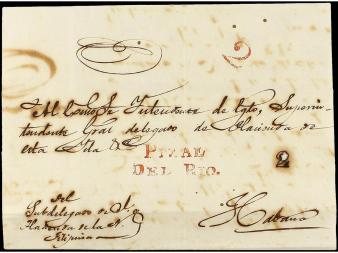 2
Al Exmo. Sr. Intendente de Egto, Superin-
tendente Gral delegado de Hacienda de
esta Isla &c
PINAL
DEL RIO.
2
del
Subdelegado de
Hacienda de la
Filipina
Habana